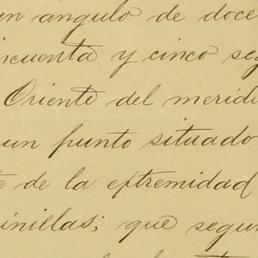 un angulo de doce
incuenta y cinco seg
Oriente del meridi
un punto situado
de la eftremidad
inillas; que segun